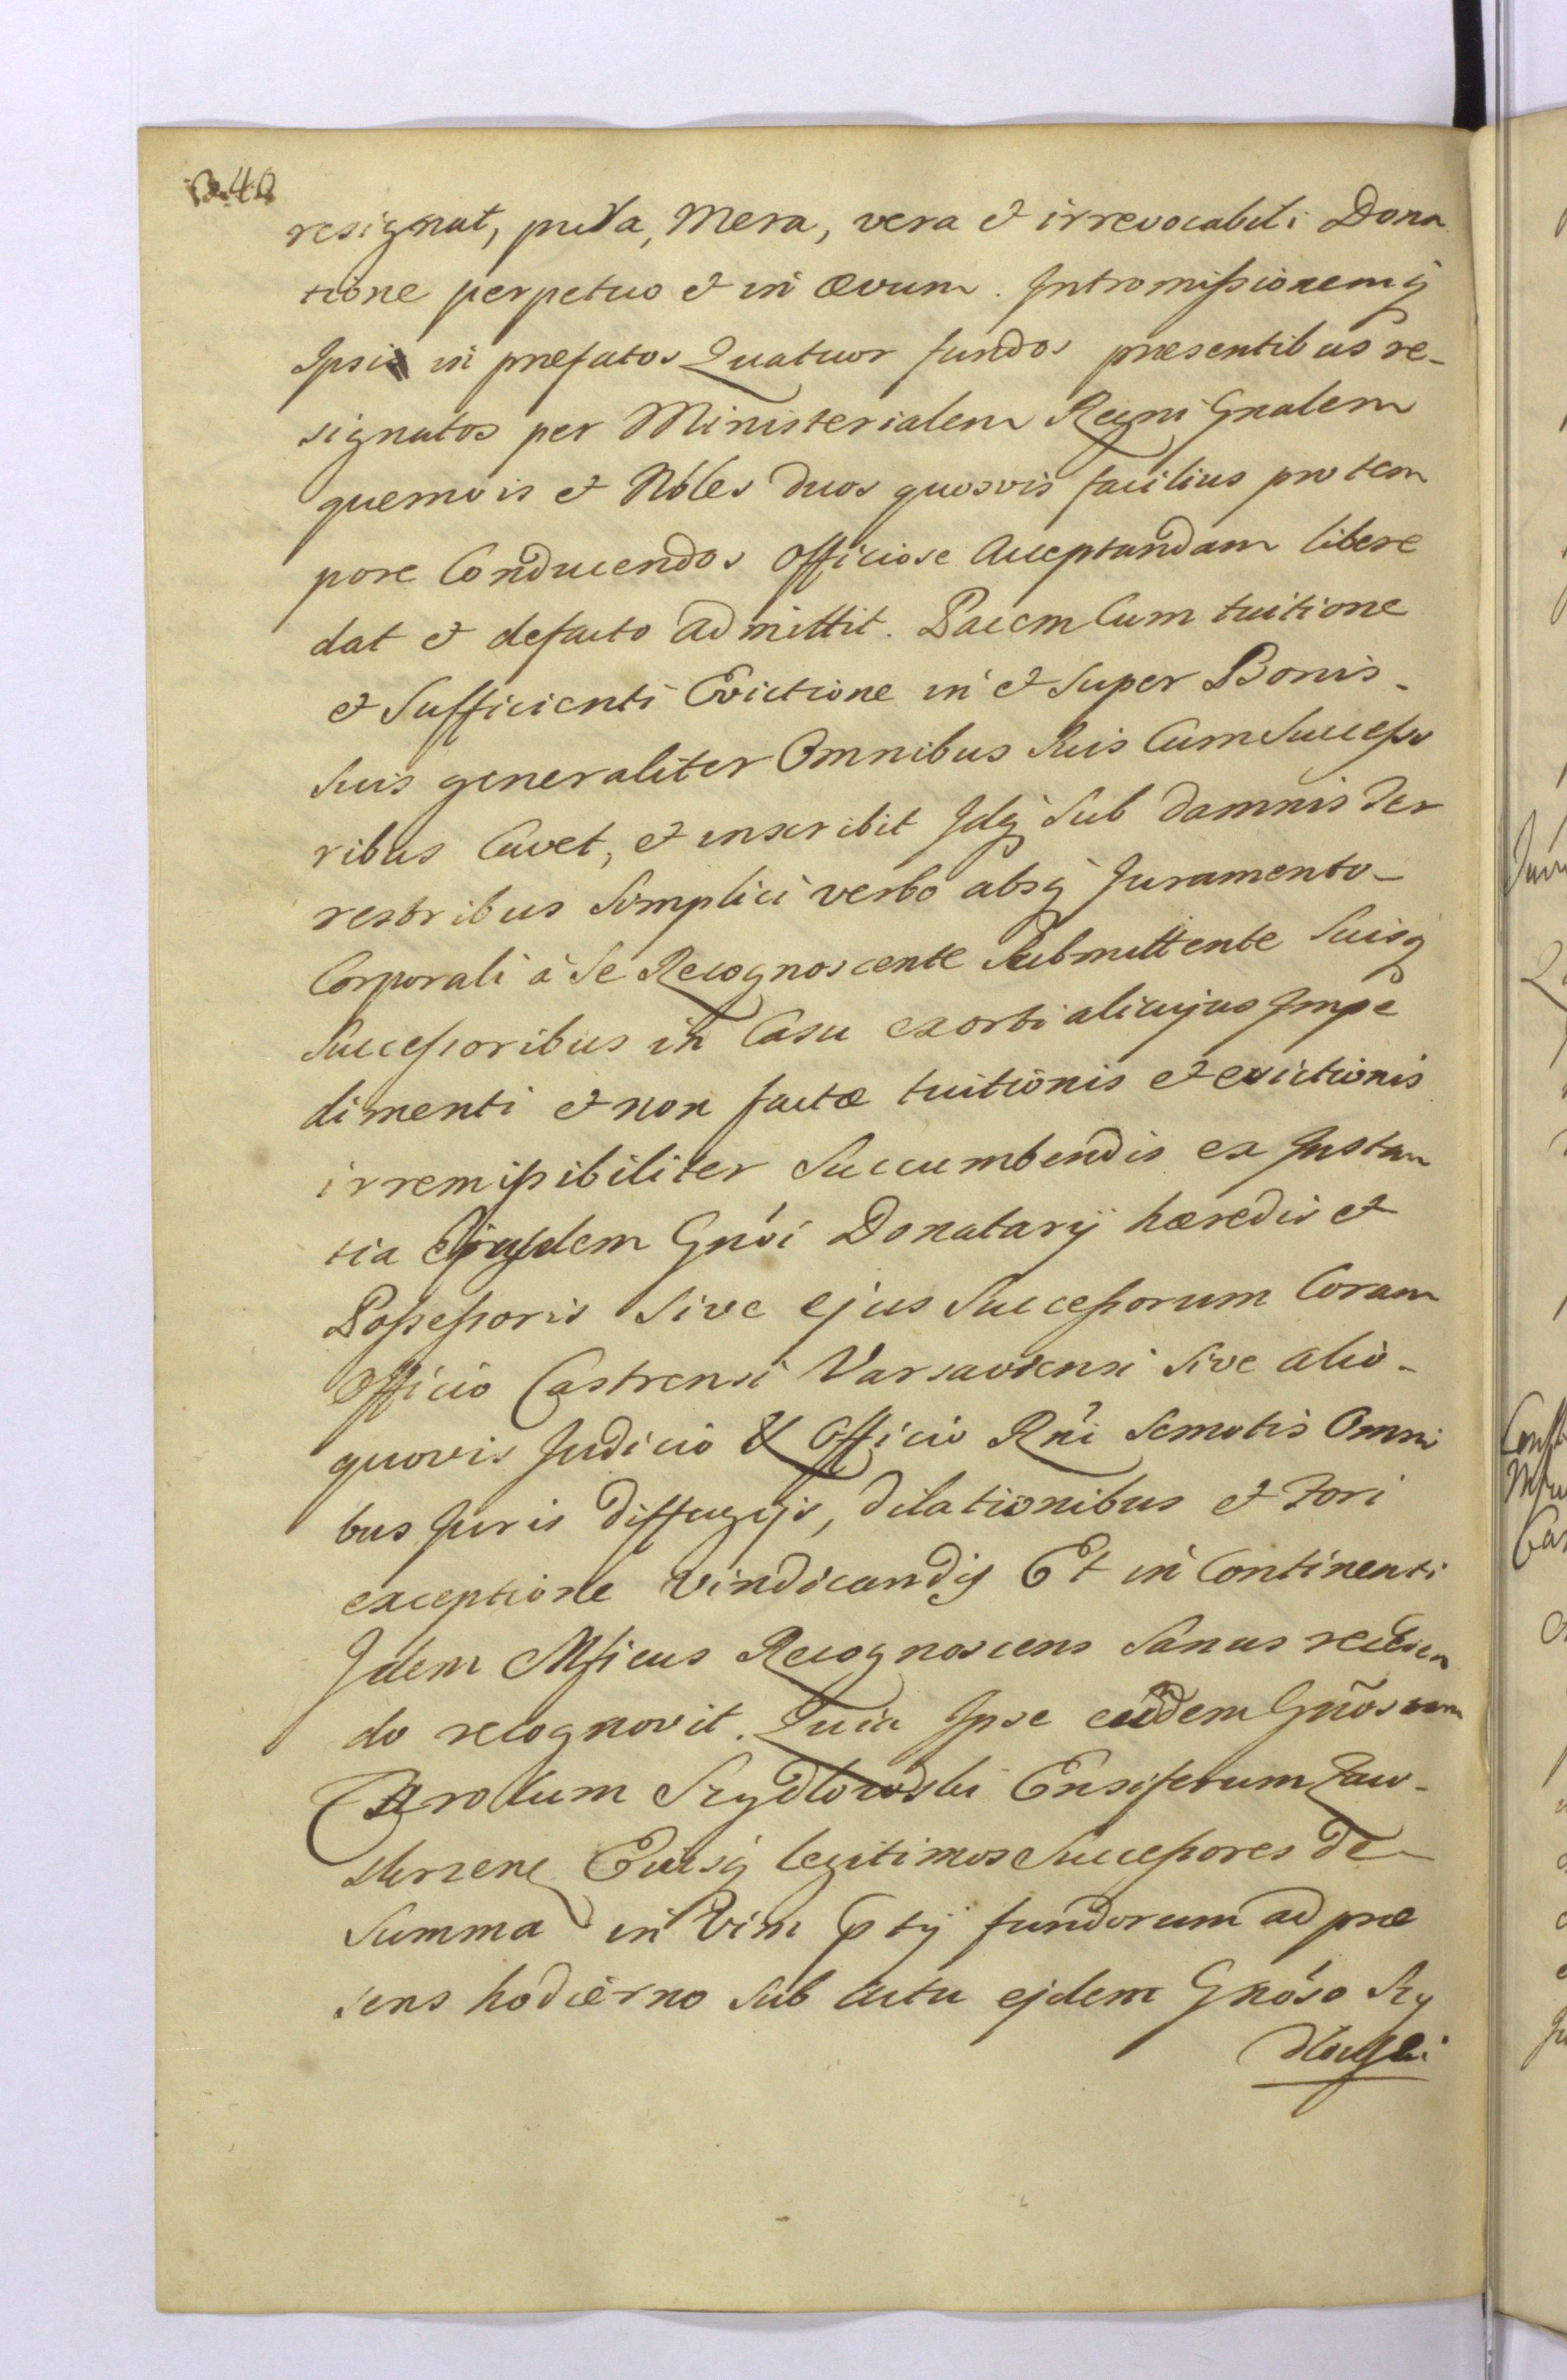 resignat, pura, Mera, vera et irrevocabili Dona
tione perpetuo et in ævum. Intromissionemq
Ipsi in præfatos Quatuor fundos præsentibus re-
signatos per Ministerialem Regni Gnalem
quemvis et Nóles duos quosvis facilius pro tem
pore Conducendos officiose acceptandam libere
dat et defacto admittit. Pacem Cum tuitione
et Sufficienti Evictione in et Super Bonis-
Suis generaliter Omnibus Suis Cum Successo
ribus Cavet, et inscribit Idq Sub damnis ter
restribus Simplici verbo absq Juramento-
Corporali à Se Recognoscente Submittente Suisq
Successoribus in Casu exorti alicujus Impe
dimenti et non factæ tuitionis et evictionis
irremissibiliter Succumbendis ex Instan
tia ejusdem Gnói Donatarij hæredis et
Possessoris Sive ejus Successorum Coram
Officio Castrensi Varsaviensi Sive alio-
quovis Judicio et Officio Rní Semotis Omni
bus Juris diffugijs, dilationibus et Fori
exceptione vindicandis Et in Continenti
Idem Mficus Recognoscens Sanus
do recognovit. Quia Ipse eúdem Gñosum
Carolum Szydłowski Ensiferum Zaw-
skrzene Ejusq legitimos Successores de
Summa in Vim ptij fundorum ad præ
sens hodierno Sub actu ejdem Gnóso Szy
dłowski